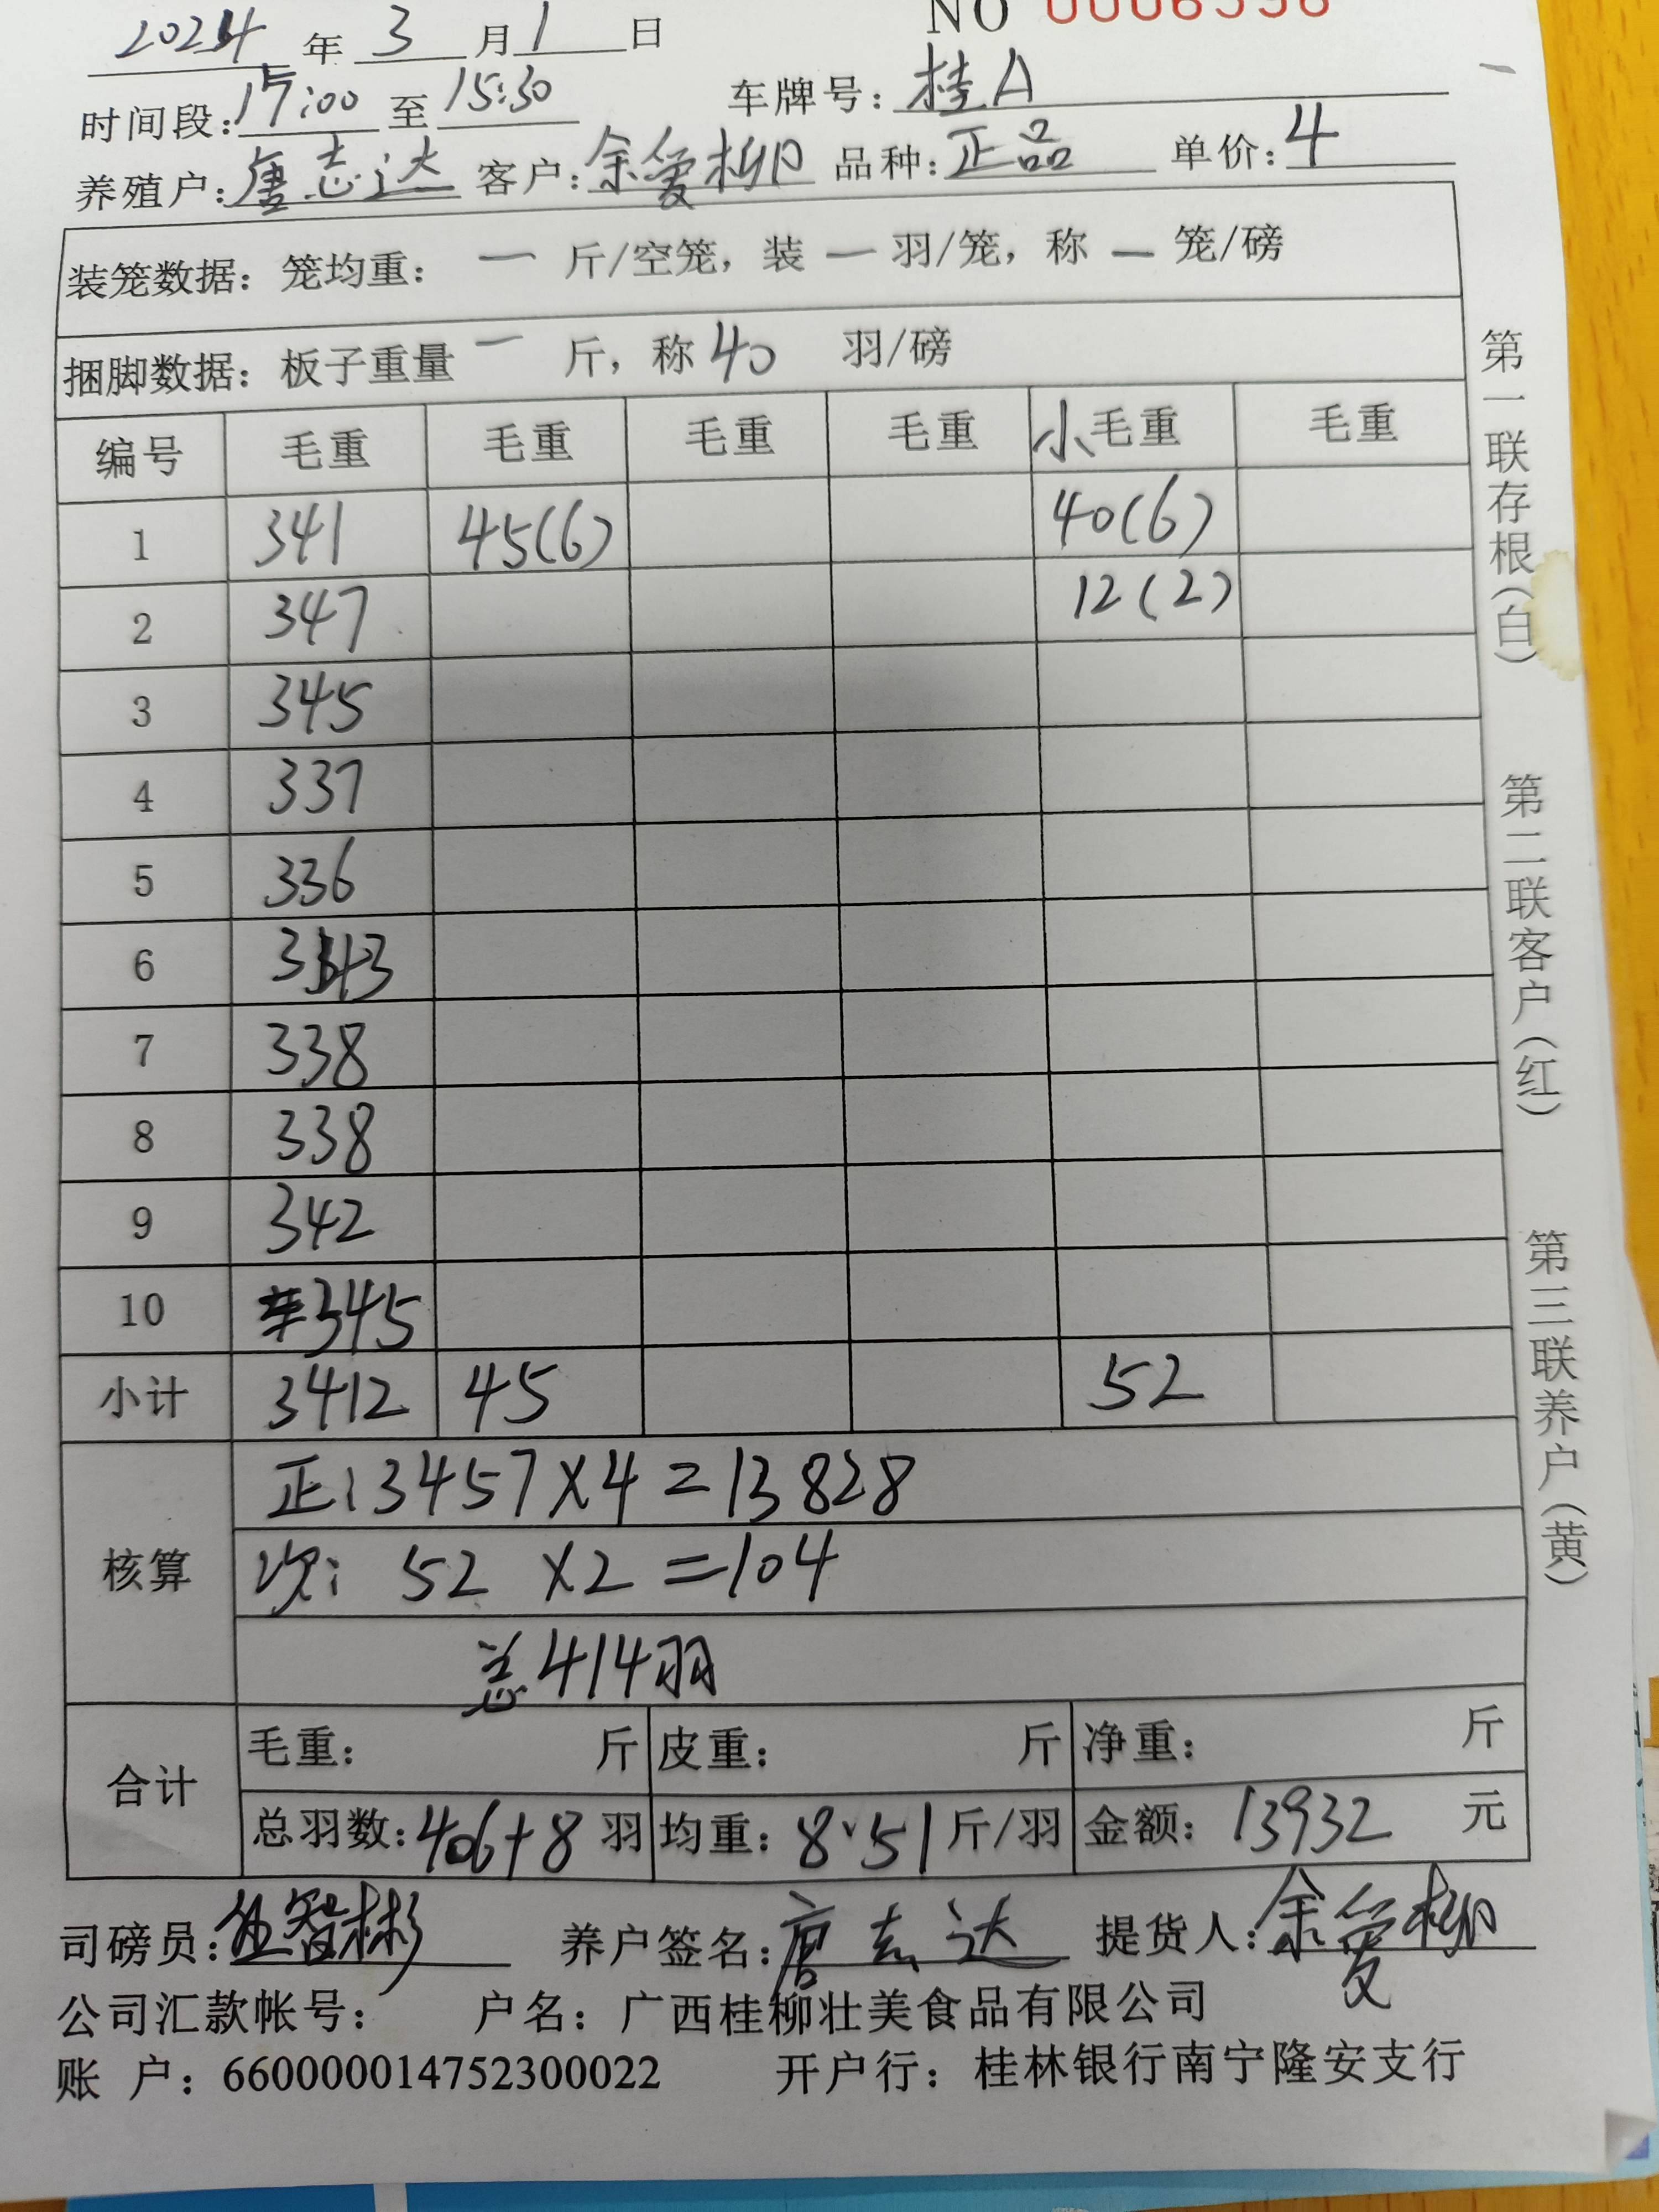 2024年3月1日
时间段:15:00至15:30 车牌号:桂A
养殖户:唐志达 客户:余爱柳 品种:正品 单价:4
装笼数据：笼均重：一斤/空笼，装一羽/笼，称一笼/磅
捆脚数据：板子重量一斤，称40羽/磅
编号 毛重 毛重 毛重 毛重 小毛重 毛重
1 341 45(6) 40(6)
2 347 12(2)
3 345
4 337
5 336
6 343
7 338
8 338
9 342
10 345
小计 3412 45 52
核算
正:3457×4=13828
次: 52 ×2=104
总414羽
合计
毛重： 斤 皮重： 斤 净重： 斤
总羽数:406+8羽 均重：8.51斤/羽 金额：13932元
司磅员:伍智彬 养户签名:唐志达 提货人:余爱柳
公司汇款帐号： 户名：广西桂柳壮美食品有限公司
账 户：660000014752300022 开户行：桂林银行南宁隆安支行
第一联存根(白) 第二联客户(红) 第三联养户(黄)